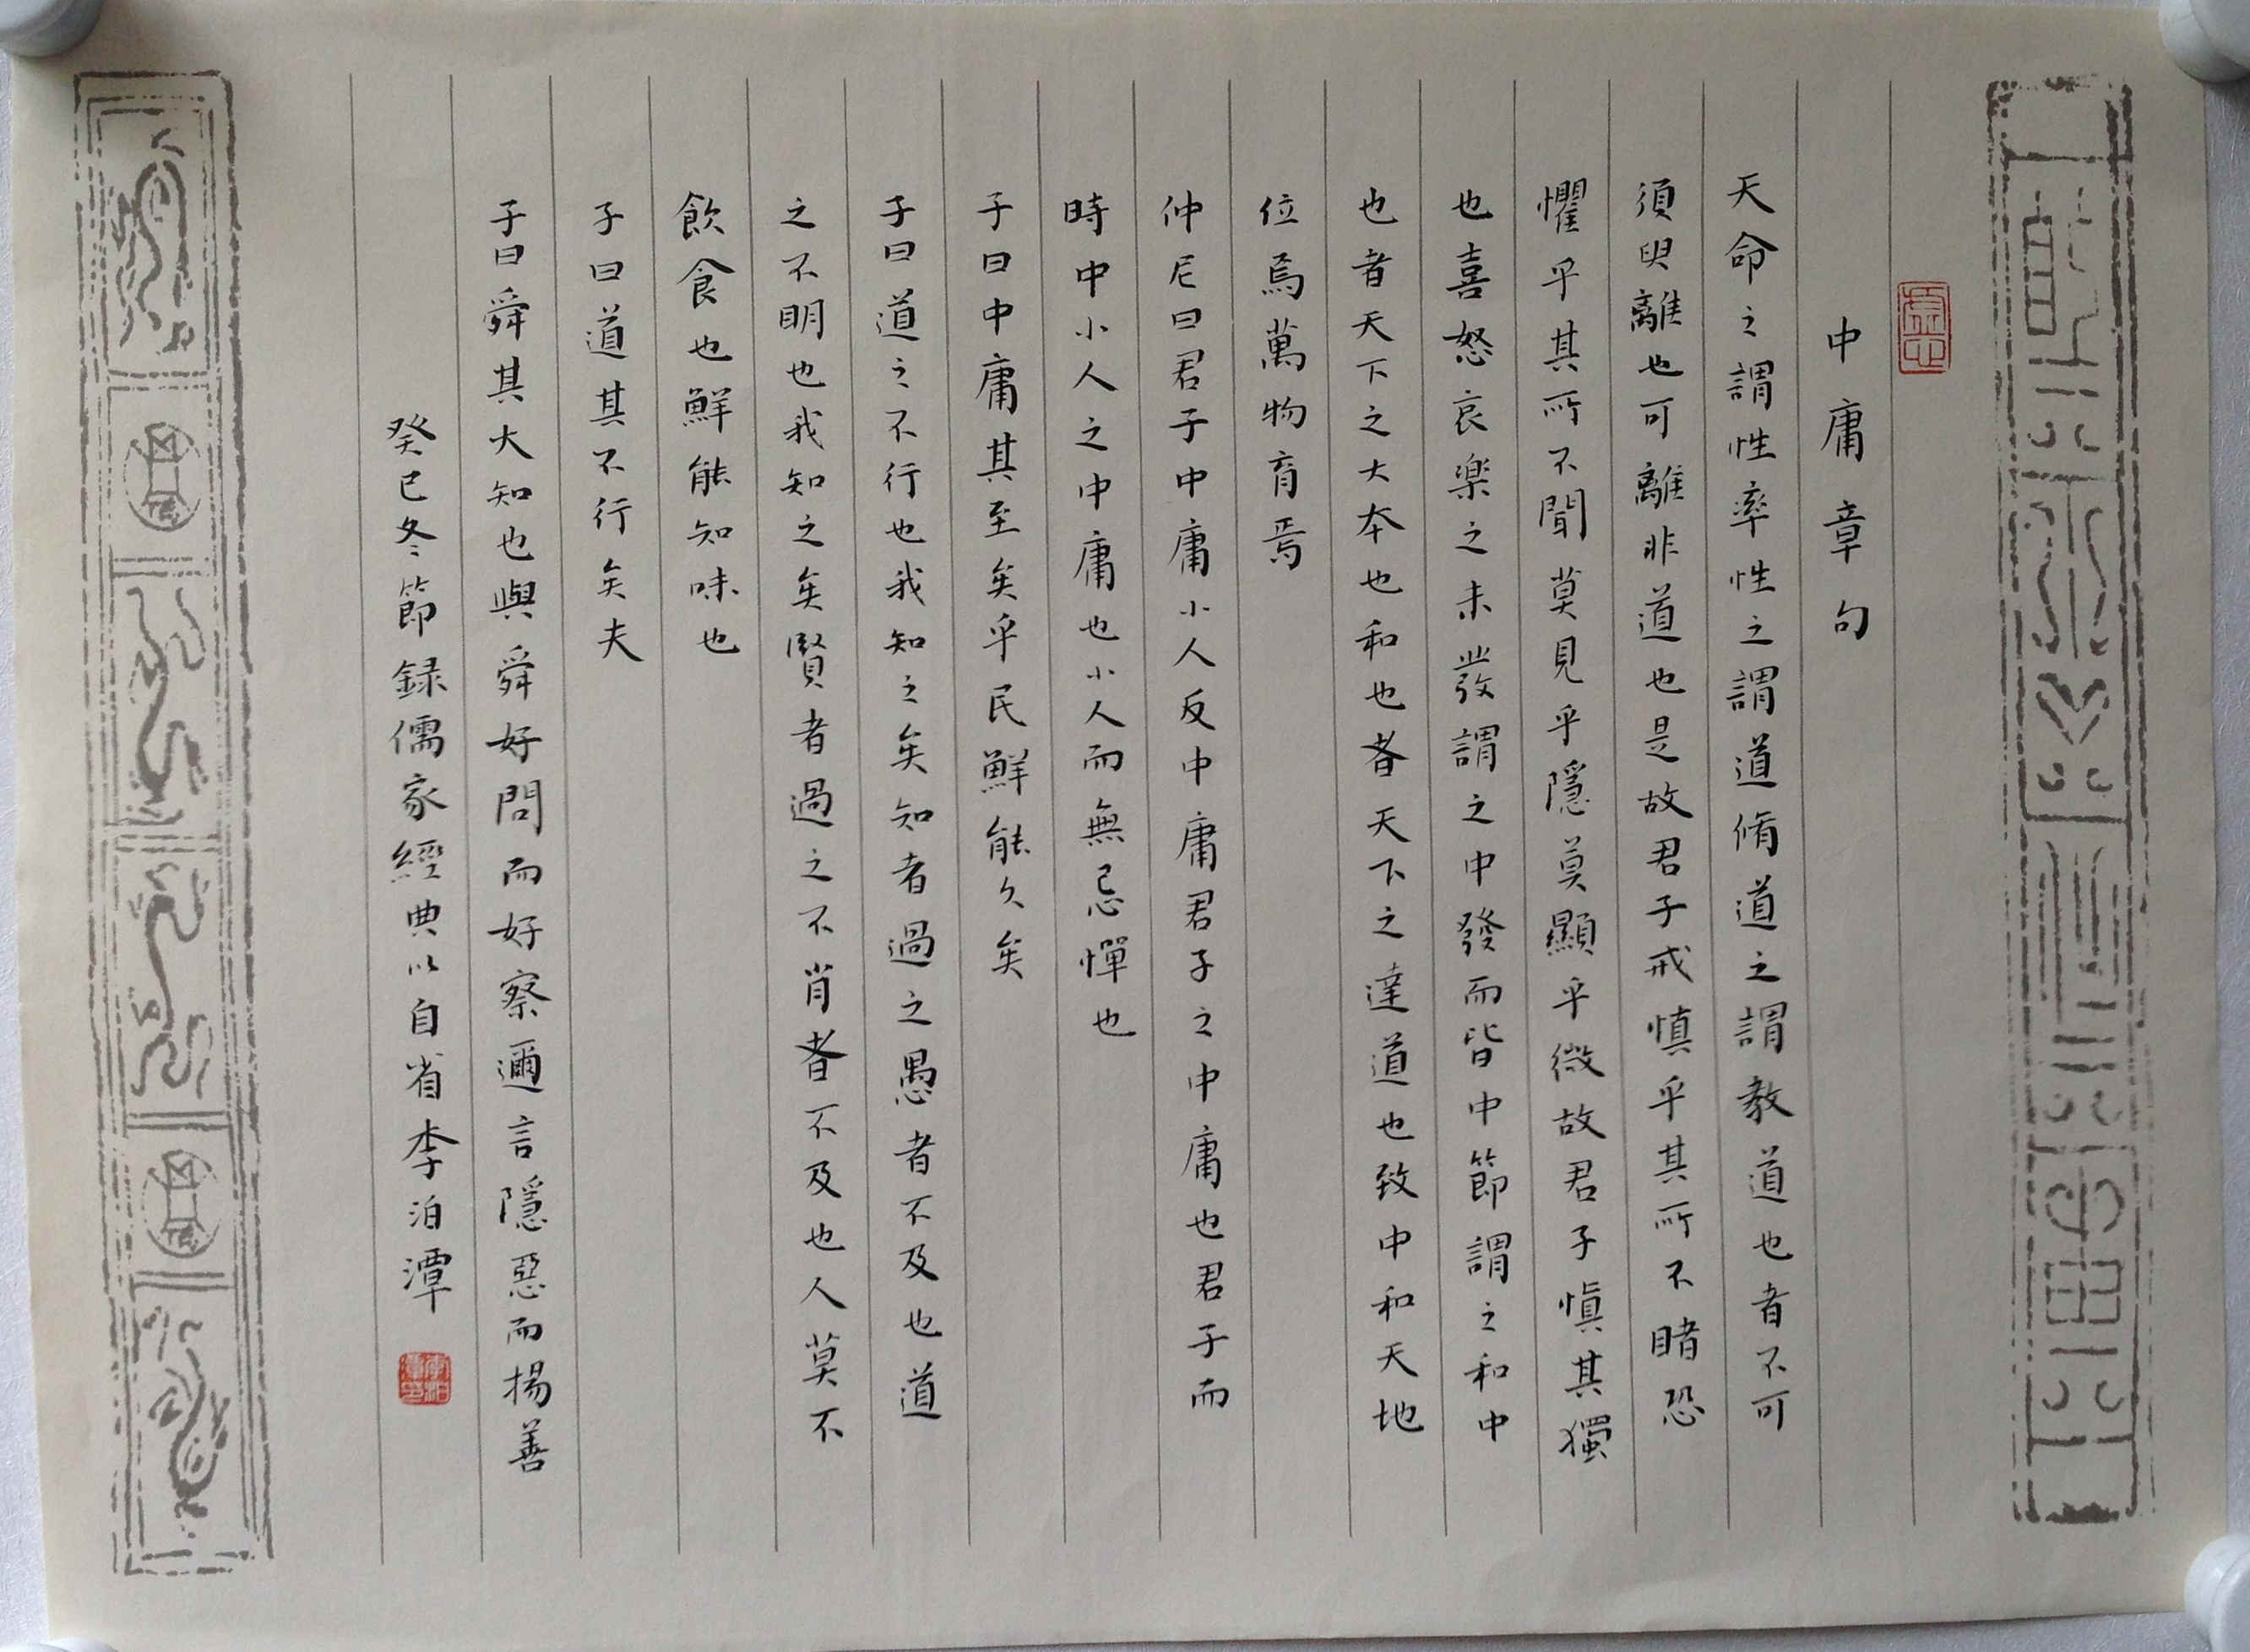 中庸章句
天命之謂性率性之謂道脩道之謂教道也者不可
須臾離也可離非道也是故君子戒慎乎其所不睹恐
懼乎其所不聞莫見乎隱莫顯乎微故君子慎其獨
也喜怒哀樂之未發謂之中發而皆中節謂之和中
也者天下之大本也和也者天下之達道也致中和天地
位焉萬物育焉
仲尼曰君子中庸小人反中庸君子之中庸也君子而
時中小人之中庸也小人而無忌憚也
子曰中庸其至矣乎民鮮能久矣
子曰道之不行也我知之矣知者過之愚者不及也道
之不明也我知之矣賢者過之不肖者不及也人莫不
飲食也鮮能知味也
子曰道其不行矣夫
子曰舜其大知也與舜好問而好察邇言隱惡而揚善
癸巳冬節録儒家經典以自省李泊潭